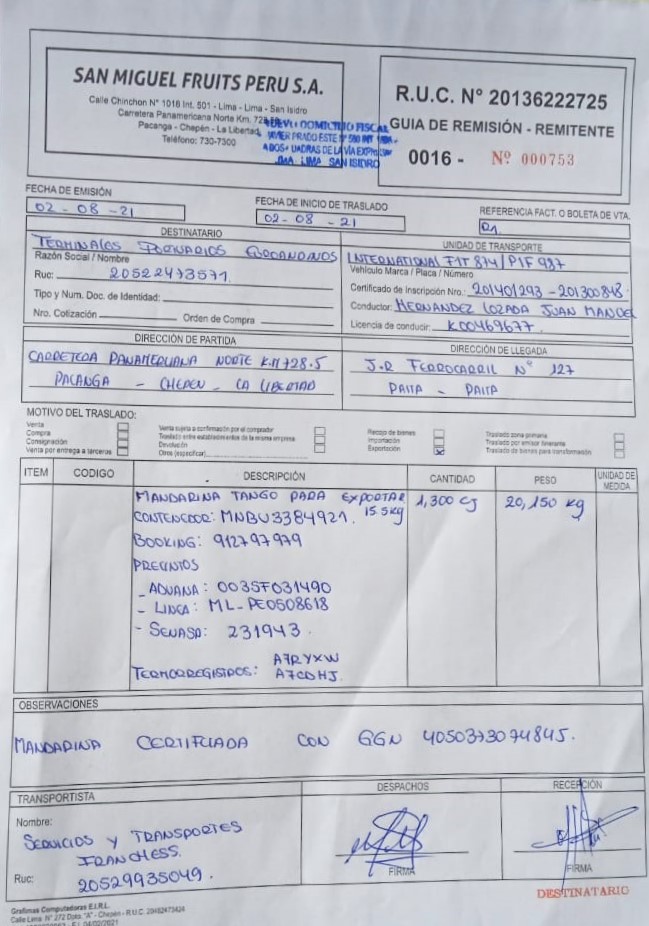 SAN MIGUEL FRUITS PERU S.A.
Calle Chinchon N° 1016 Int. 501 - Lima - Lima - San Isidro
Carretera Panamericana Norte Km. 728
Pacanga - Chepén - La Libertad
Teléfono: 730-7300
NUEVO DOMICILIO FISCAL
JAVIER PRADO ESTE N° 590 INT
A DOS CUADRAS DE LA VÍA EXPRESA
LIMA LIMA SAN ISIDRO
R.U.C. N° 20136222725
GUIA DE REMISIÓN - REMITENTE
0016 - Nº 000753
FECHA DE EMISIÓN
02 - 08 - 21
FECHA DE INICIO DE TRASLADO
02 - 08 - 21
REFERENCIA FACT. O BOLETA DE VTA.
DESTINATARIO
TERMINALES PORTUARIOS EUROANDINOS
Razón Social / Nombre
Ruc: 20522473571.
Tipo y Num. Doc. de Identidad:
Nro. Cotización Orden de Compra
UNIDAD DE TRANSPORTE
INTERNATIONAL F1T 874 / P1F 987
Vehículo Marca / Placa / Número
Certificado de Inscripción Nro.: 201401293 - 201300848
Conductor: HERNANDEZ LOZADA JUAN MANUEL
Licencia de conducir: K00469677.
DIRECCIÓN DE PARTIDA
CARRETERA PANAMERICANA NORTE K.M 728.5
PACANGA - CHEPEN - LA LIBERTAD
DIRECCIÓN DE LLEGADA
J.R FERROCARRIL N° 127
PAITA - PAITA
MOTIVO DEL TRASLADO:
Venta
Compra
Consignación
Venta por entrega a terceros
Venta sujeta a confirmación por el comprador
Traslado entre establecimientos de la misma empresa
Devolución
Otros (especificar)
Recojo de bienes
Importación
Exportación
Traslado zona primaria
Traslado por emisor itinerante
Traslado de bienes para transformación
ITEM CODIGO DESCRIPCIÓN CANTIDAD PESO UNIDAD DE MEDIDA
MANDARINA TANGO PARA EXPORTAR 1,300 CJ 20,150 kg
CONTENEDOR: MNBU3384921. 15.5kg
BOOKING: 912797979
PRECINTOS
- ADUANA: 0035F031490
- LINEA: ML-PE0508618
- SENASA: 231943.
A7RYXW
TERMORREGISTROS: A7CDHJ.
OBSERVACIONES
MANDARINA CERTIFICADA CON GGN 4050373074845.
TRANSPORTISTA
Nombre:
SERVICIOS Y TRANSPORTES
FRANCHESS.
Ruc: 20529935049.
DESPACHOS
FIRMA
RECEPCIÓN
FIRMA
DESTINATARIO
Grafimas Computadoras E.I.R.L.